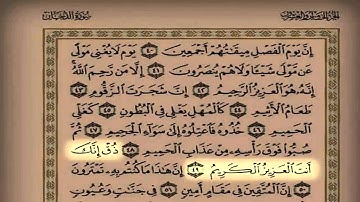 سورة الدخان
الجزء الخامس والعشرون
إِنَّ يَوْمَ الْفَصْلِ مِيقَاتُهُمْ أَجْمَعِينَ ٤٠ يَوْمَ لَا يُغْنِي مَوْلًى
عَن مَّوْلًى شَيْئًا وَلَا هُمْ يُنصَرُونَ ٤١ إِلَّا مَن رَّحِمَ اللَّهُ
إِنَّهُ هُوَ الْعَزِيزُ الرَّحِيمُ ٤٢ إِنَّ شَجَرَتَ الزَّقُّومِ ٤٣
طَعَامُ الْأَثِيمِ ٤٤ كَالْمُهْلِ يَغْلِي فِي الْبُطُونِ ٤٥ كَغَلْيِ
الْحَمِيمِ ٤٦ خُذُوهُ فَاعْتِلُوهُ إِلَىٰ سَوَاءِ الْجَحِيمِ ٤٧ ثُمَّ
صُبُّوا فَوْقَ رَأْسِهِ مِنْ عَذَابِ الْحَمِيمِ ٤٨ ذُقْ إِنَّكَ
أَنتَ الْعَزِيزُ الْكَرِيمُ ٤٩ إِنَّ هَٰذَا مَا كُنتُم بِهِ تَمْتَرُونَ
٥٠ إِنَّ الْمُتَّقِينَ فِي مَقَامٍ أَمِينٍ ٥١ فِي جَنَّاتٍ وَعُيُونٍ